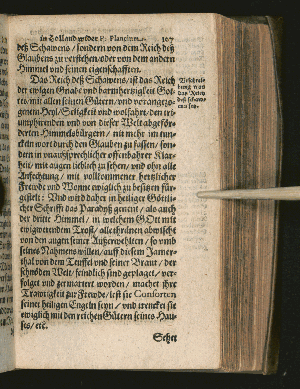 in Holland wider P. Plancium. 107
deß Schawens / sondern von dem Reich deß
Glaubens zu verstehen / oder von dem andern
Himmel vnd seinen eigenschafften.
Das Reich deß Schawens / ist das Reich
der ewigen Gnade vnd barmhertzigkeit Got-
tes / mit allen seinen Gütern / vnd
genem Heyl / Seligkeit vnd wolfahrt / den tri-
umphirenden vnd von dieser Welt abgefor-
derten Himmelsbürgern / nit mehr im tun-
ckeln wort durch den Glauben zu fassen / son-
dern in vnaußsprechlicher offenbahrer Klar-
heit / mit augen lieblich zu sehen / vnd ohn alle
Anfechtung / mit vollkommener hertzlicher
Frewde vnd Wonne ewiglich zu besitzen für-
gestelt: Vnd wird daher in heiliger Göttli-
cher Schrifft das Paradyß genent / als auch
der dritte Himmel / in welchem GOtt mit
ewigwerendem Trost / alle threnen abwischt
von den augen seiner Außerwehlten / so vmb
seines Nahmens willen / auff diesem Jamer-
thal von dem Teuffel vnd seiner Braut / der
schnöden Welt / feindlich sind geplaget / ver-
folget vnd gemartert worden / machet ihre
Trawrigkeit zur Frewde / lest sie Consorten
seiner heiligen Engeln seyn / vnd trencket sie
ewiglich mit den reichen Gütern seines Hau-
ses / etc.
Schet
Beschrei-
bung was
das Reich
deß schawe
ns sey.